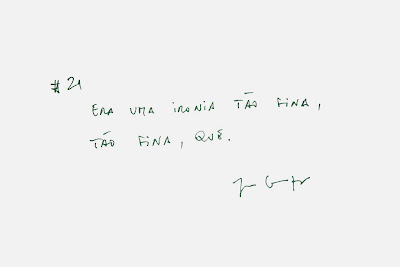 #21
ERA UMA IRONIA TÃO FINA,
TÃO FINA, QUE.